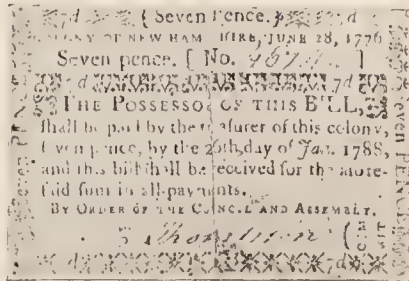 7d ( Seven Pence. 7d
COLONY OF NEW HAMPSHIRE, JUNE 28, 1776
Seven pence. [ No. ]
7d 7d
THE POSSESSOR OF THIS BILL,
ſhall be paid by the treaſurer of this colony,
ſeven pence, by the 26th day of Jan. 1788,
and this bill ſhall be received for the afore-
ſaid ſum in all payments.
BY ORDER OF THE COUNCIL AND ASSEMBLY.
7d 7d
Seven PENCE